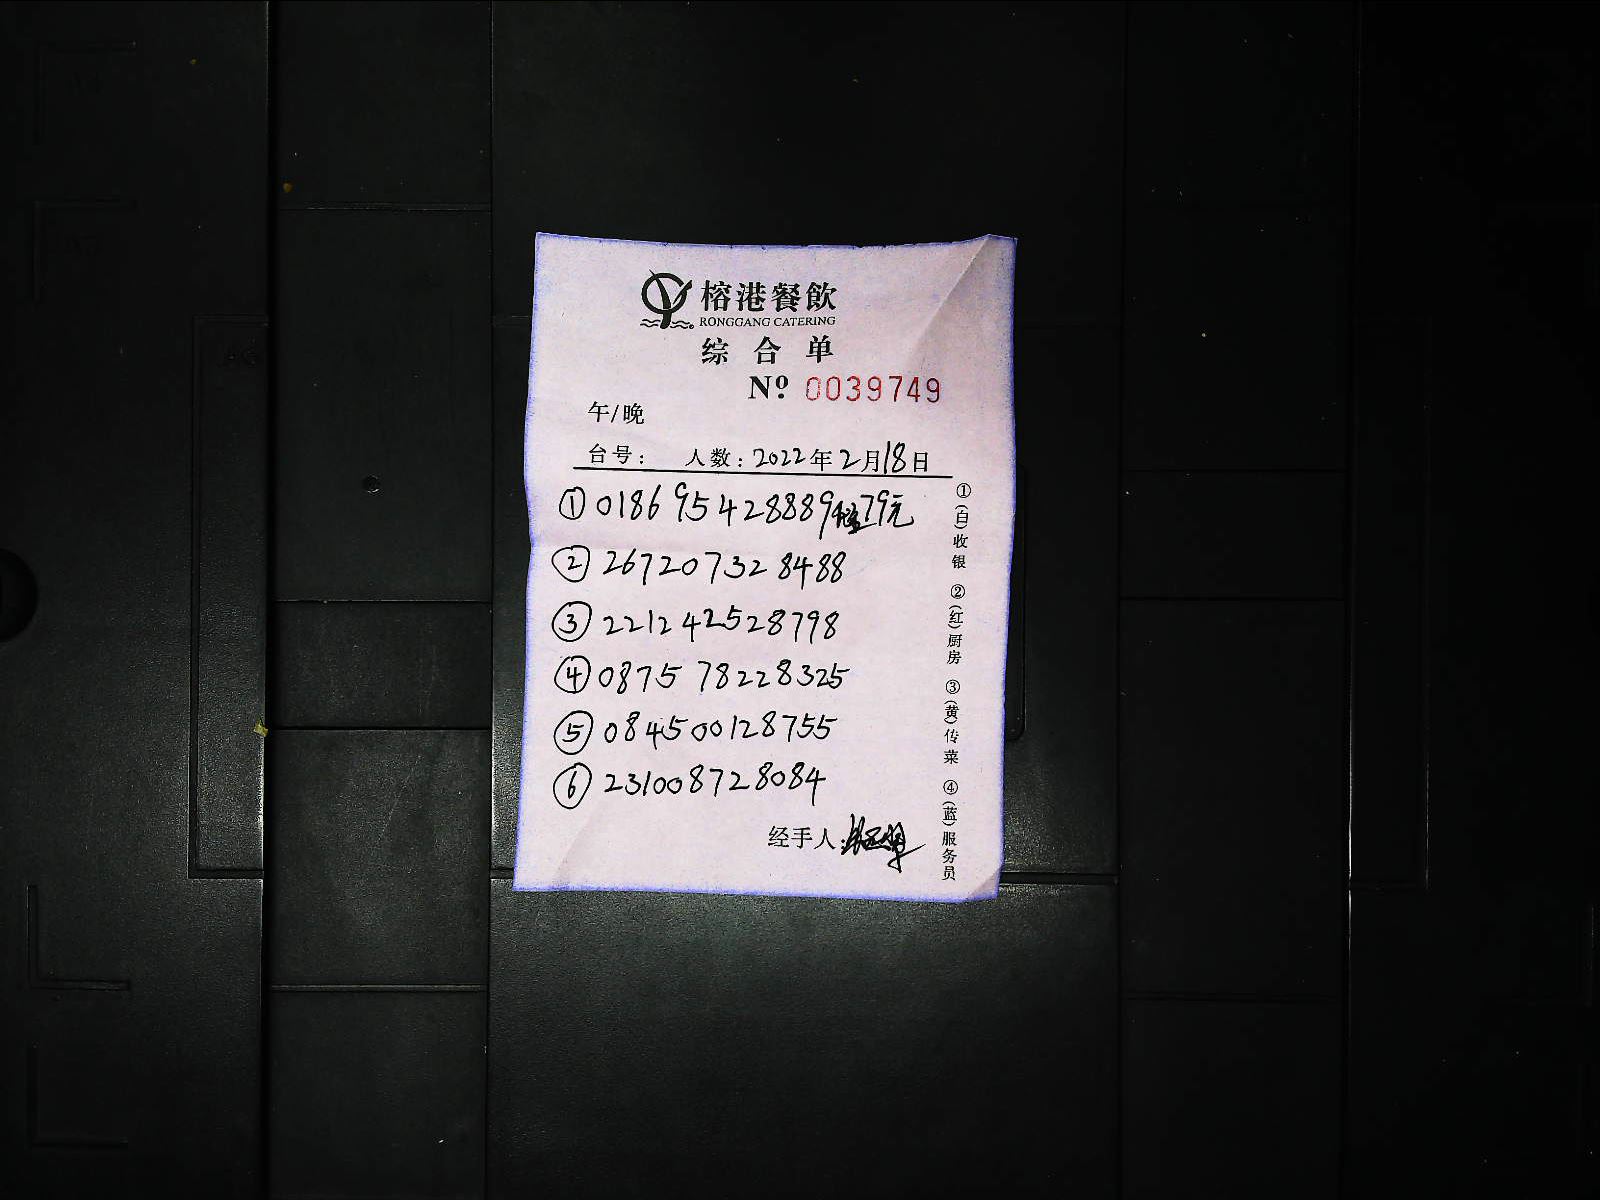 榕港餐飲
RONGGANG CATERING
综合单
Nº 0039749
午/晚
台号: 人数: 2022年2月18日
①018695428889 79元
②267207328488
③221242528798
④087578228325
⑤084500128755
⑥231008728084
经手人:
①(白)收银 ②(红)厨房 ③(黄)传菜 ④(蓝)服务员